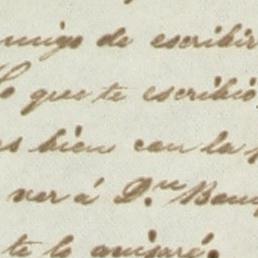 migo de escribir
lo que te escribió
s bien con la
ver á D.ⁿ
te lo avisaré.